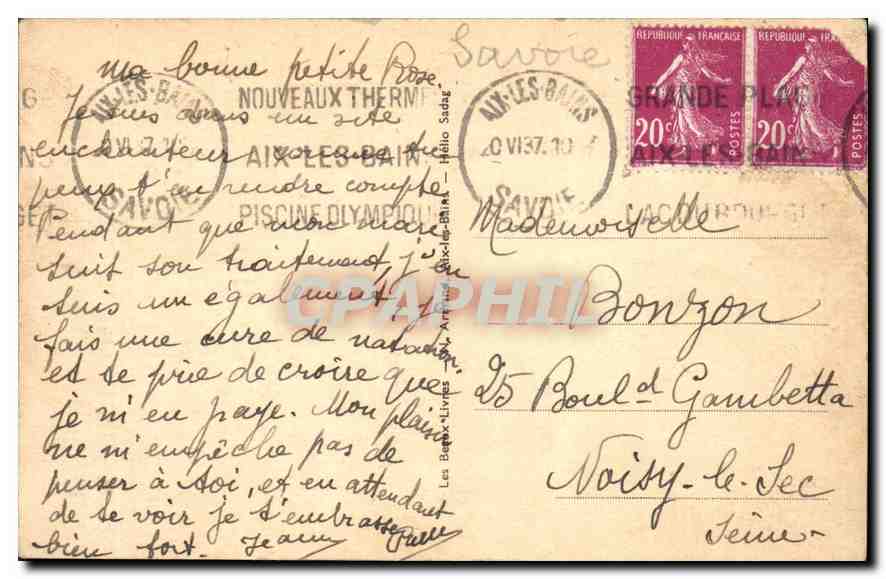 Ma bonne petite Rose
Je suis dans un site
enchanteur
peux t'en rendre compte
Pendant que mon mari
suit son traitement, j'en
suis un également, je
fais une cure de natation
et te prie de croire que
je m'en paye. Mon plaisir
ne m'empêche pas de
penser à toi, et en attendant
de te voir je t'embrasse
bien fort.
AIX-LES-BAINS
SAVOIE
NOUVEAUX THERM
AIX-LES-BAINS
PISCINE OLYMPIQUE
Les Beaux Livres — L. Aix-les-Bains — Hélio "Sadag"
Savoie
AIX-LES-BAINS
20 VI 37. 10
SAVOIE
REPUBLIQUE FRANÇAISE
20c
POSTES
REPUBLIQUE FRA
20c
POSTES
GRANDE PLAG
AIX-LES-BAIN
LAC DU BOURGE
Mademoiselle
Bonzon
25 Boul.d Gambetta
Noisy-le-Sec
Seine
CPAPHIL